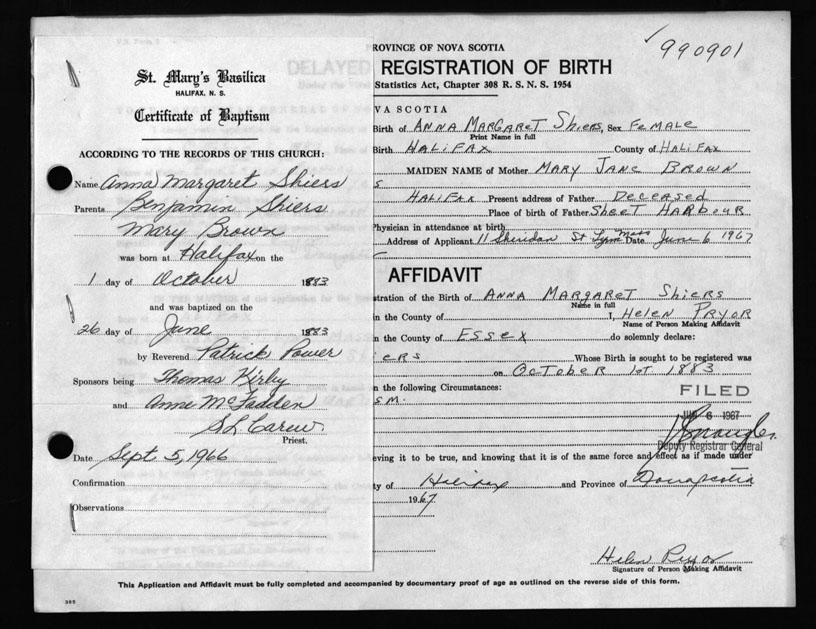 St. Mary's Basilica
HALIFAX, N. S.
Certificate of Baptism
ACCORDING TO THE RECORDS OF THIS CHURCH:
Name Anna Margaret Shiers
Parents Benjamin Shiers
Mary Brown
was born at Halifax on the
1 day of October 1883
and was baptized on the
26 day of June 1883
by Reverend Patrick Power
Sponsors being Thomas Kirby
and Anne McFadden
S L Carew
Priest.
Date Sept 5, 1966
Confirmation
Observations
990901
ROVINCE OF NOVA SCOTIA
DELAYED REGISTRATION OF BIRTH
Statistics Act, Chapter 308 R. S. N. S. 1954
VA SCOTIA
Birth of ANNA MARGARET Shiers, Sex FeMALE
Print Name in full
Birth HALIFAX County of HALIFAX
MAIDEN NAME of Mother MARY JANE BROWN
S
HALIFAX Present address of Father Deceased
Place of birth of Father SheeT HARBOUR
Physician in attendance at birth
Address of Applicant 11 Sheridan St Lynn Mass Date June 6 1967
AFFIDAVIT
stration of the Birth of ANNA MARGARET Shiers
Name in full
n the County of I, HeLEN PRYOR
Name of Person Making Affidavit
n the County of ESSEX do solemnly declare:
iers Whose Birth is sought to be registered was
on OCTOBER 1ST 1883
n the following Circumstances:
SM.
FILED
6 1967
Deputy Registrar General
eving it to be true, and knowing that it is of the same force and effect as if made under
ty of Halifax and Province of Nova Scotia
1967
Helen Pryor
Signature of Person Making Affidavit
This Application and Affidavit must be fully completed and accompanied by documentary proof of age as outlined on the reverse side of this form.